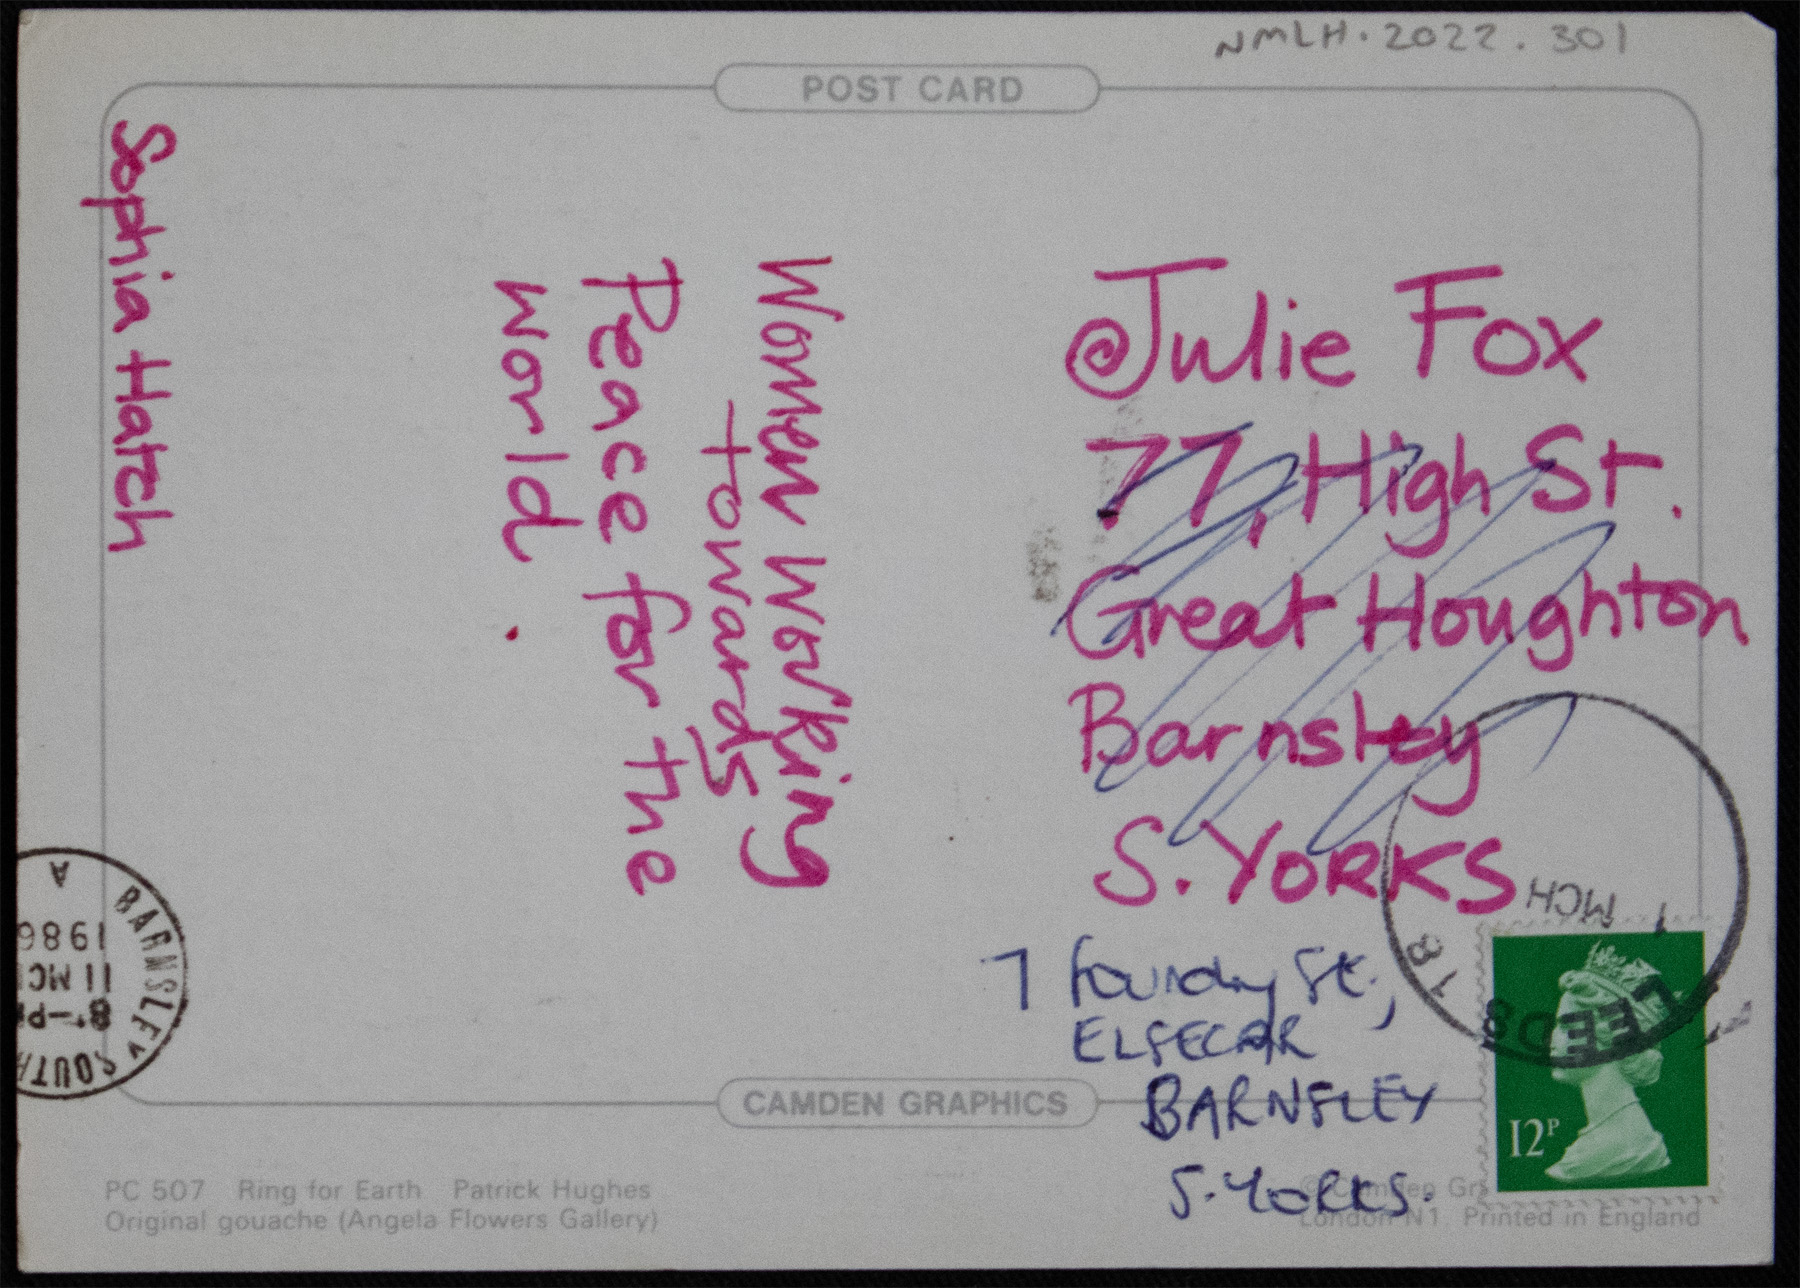 NMLH.2022.301
POST CARD
Sophia Hatch
Women Working
towards
Peace for the
world.
Julie Fox
77, High St.
Great Houghton
Barnsley
S. YORKS
7 Foundry St.,
ELSECAR
BARNSLEY
S. YORKS.
MCH
LEEDS
12P
A
1986
11 MC
8-P
BARNSLEY SOUTH
CAMDEN GRAPHICS
PC 507 Ring for Earth Patrick Hughes
Original gouache (Angela Flowers Gallery)
© Camden Gr
London N1. Printed in England